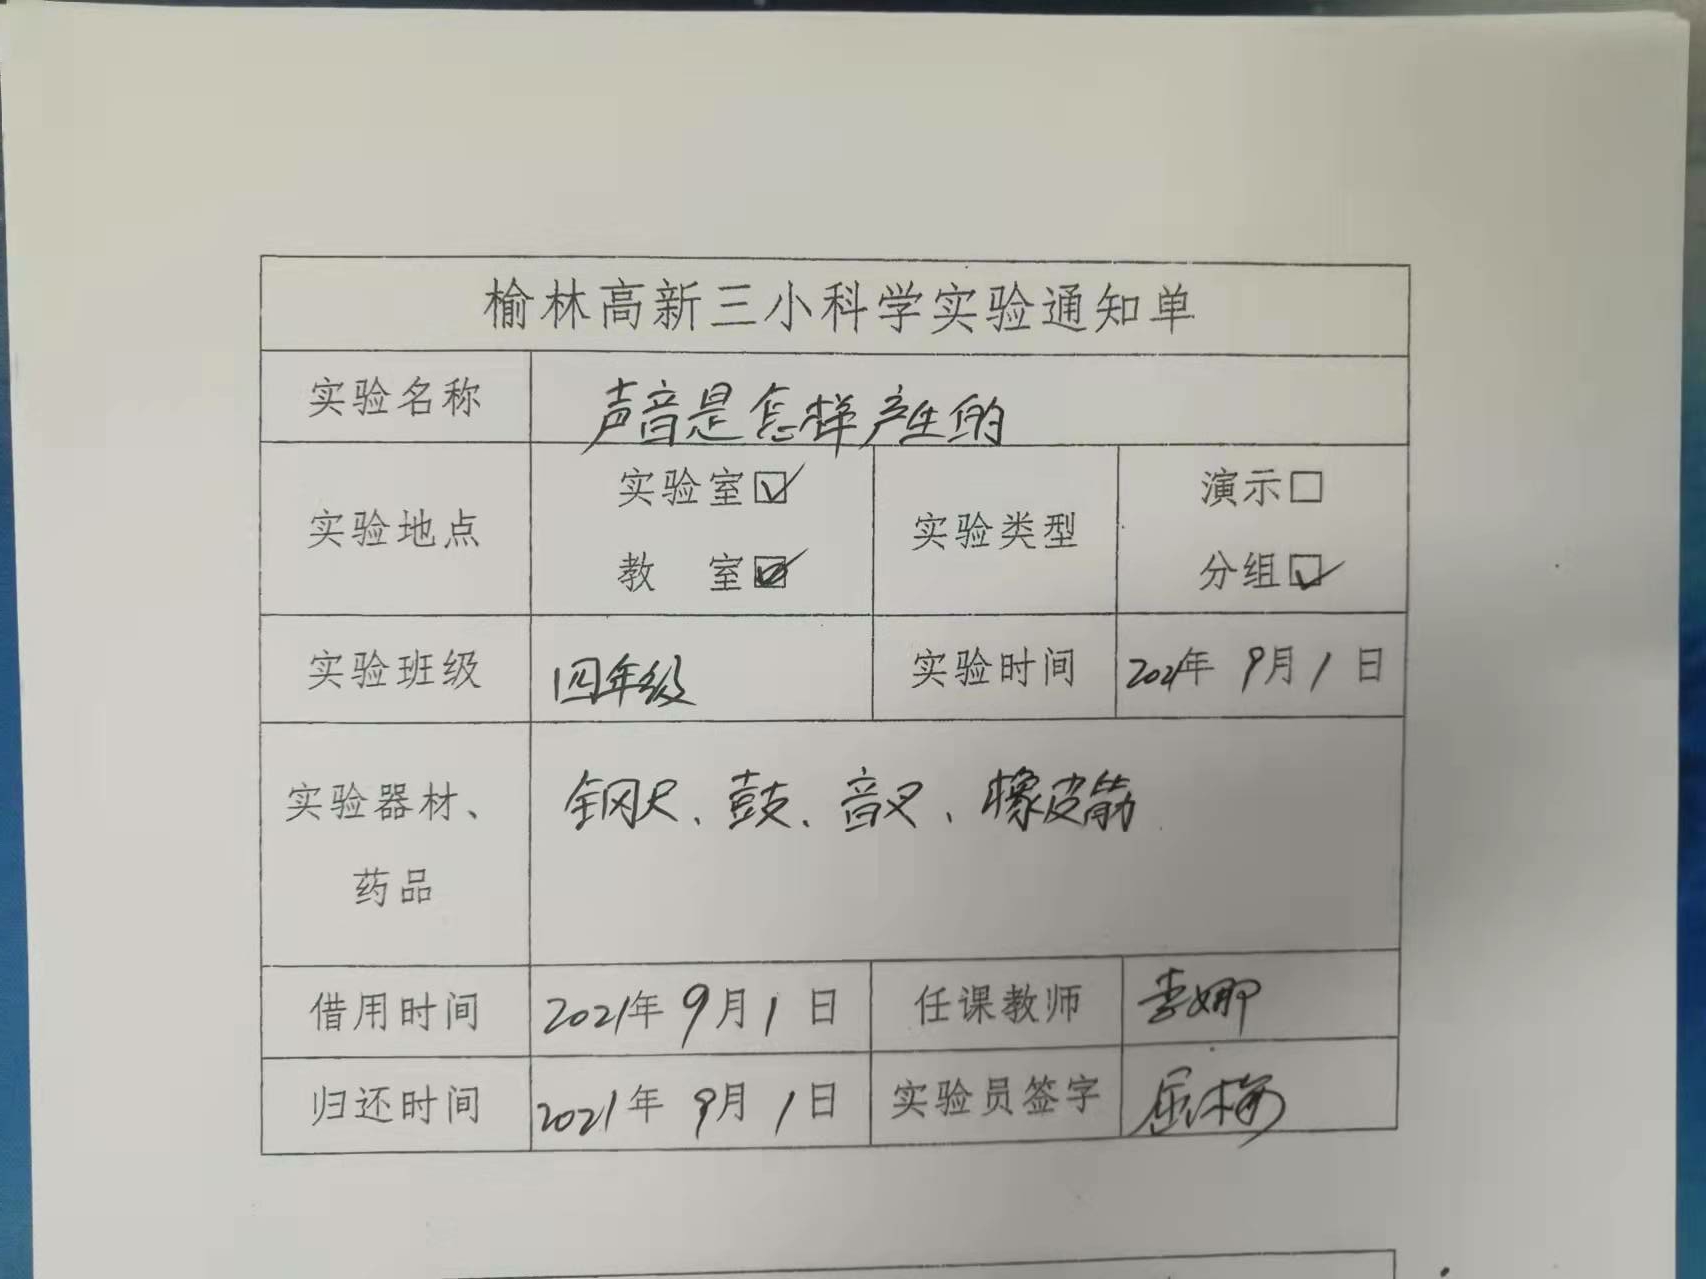 榆林高新三小科学实验通知单
实验名称 声音是怎样产生的
实验地点 实验室☑ 教 室☑ 实验类型 演示□ 分组☑
实验班级 四年级 实验时间 2021年 9月 1 日
实验器材、药品 钢尺、鼓、音叉、橡皮筋
借用时间 2021年 9月 1 日 任课教师 李娜
归还时间 2021年 9月 1日 实验员签字